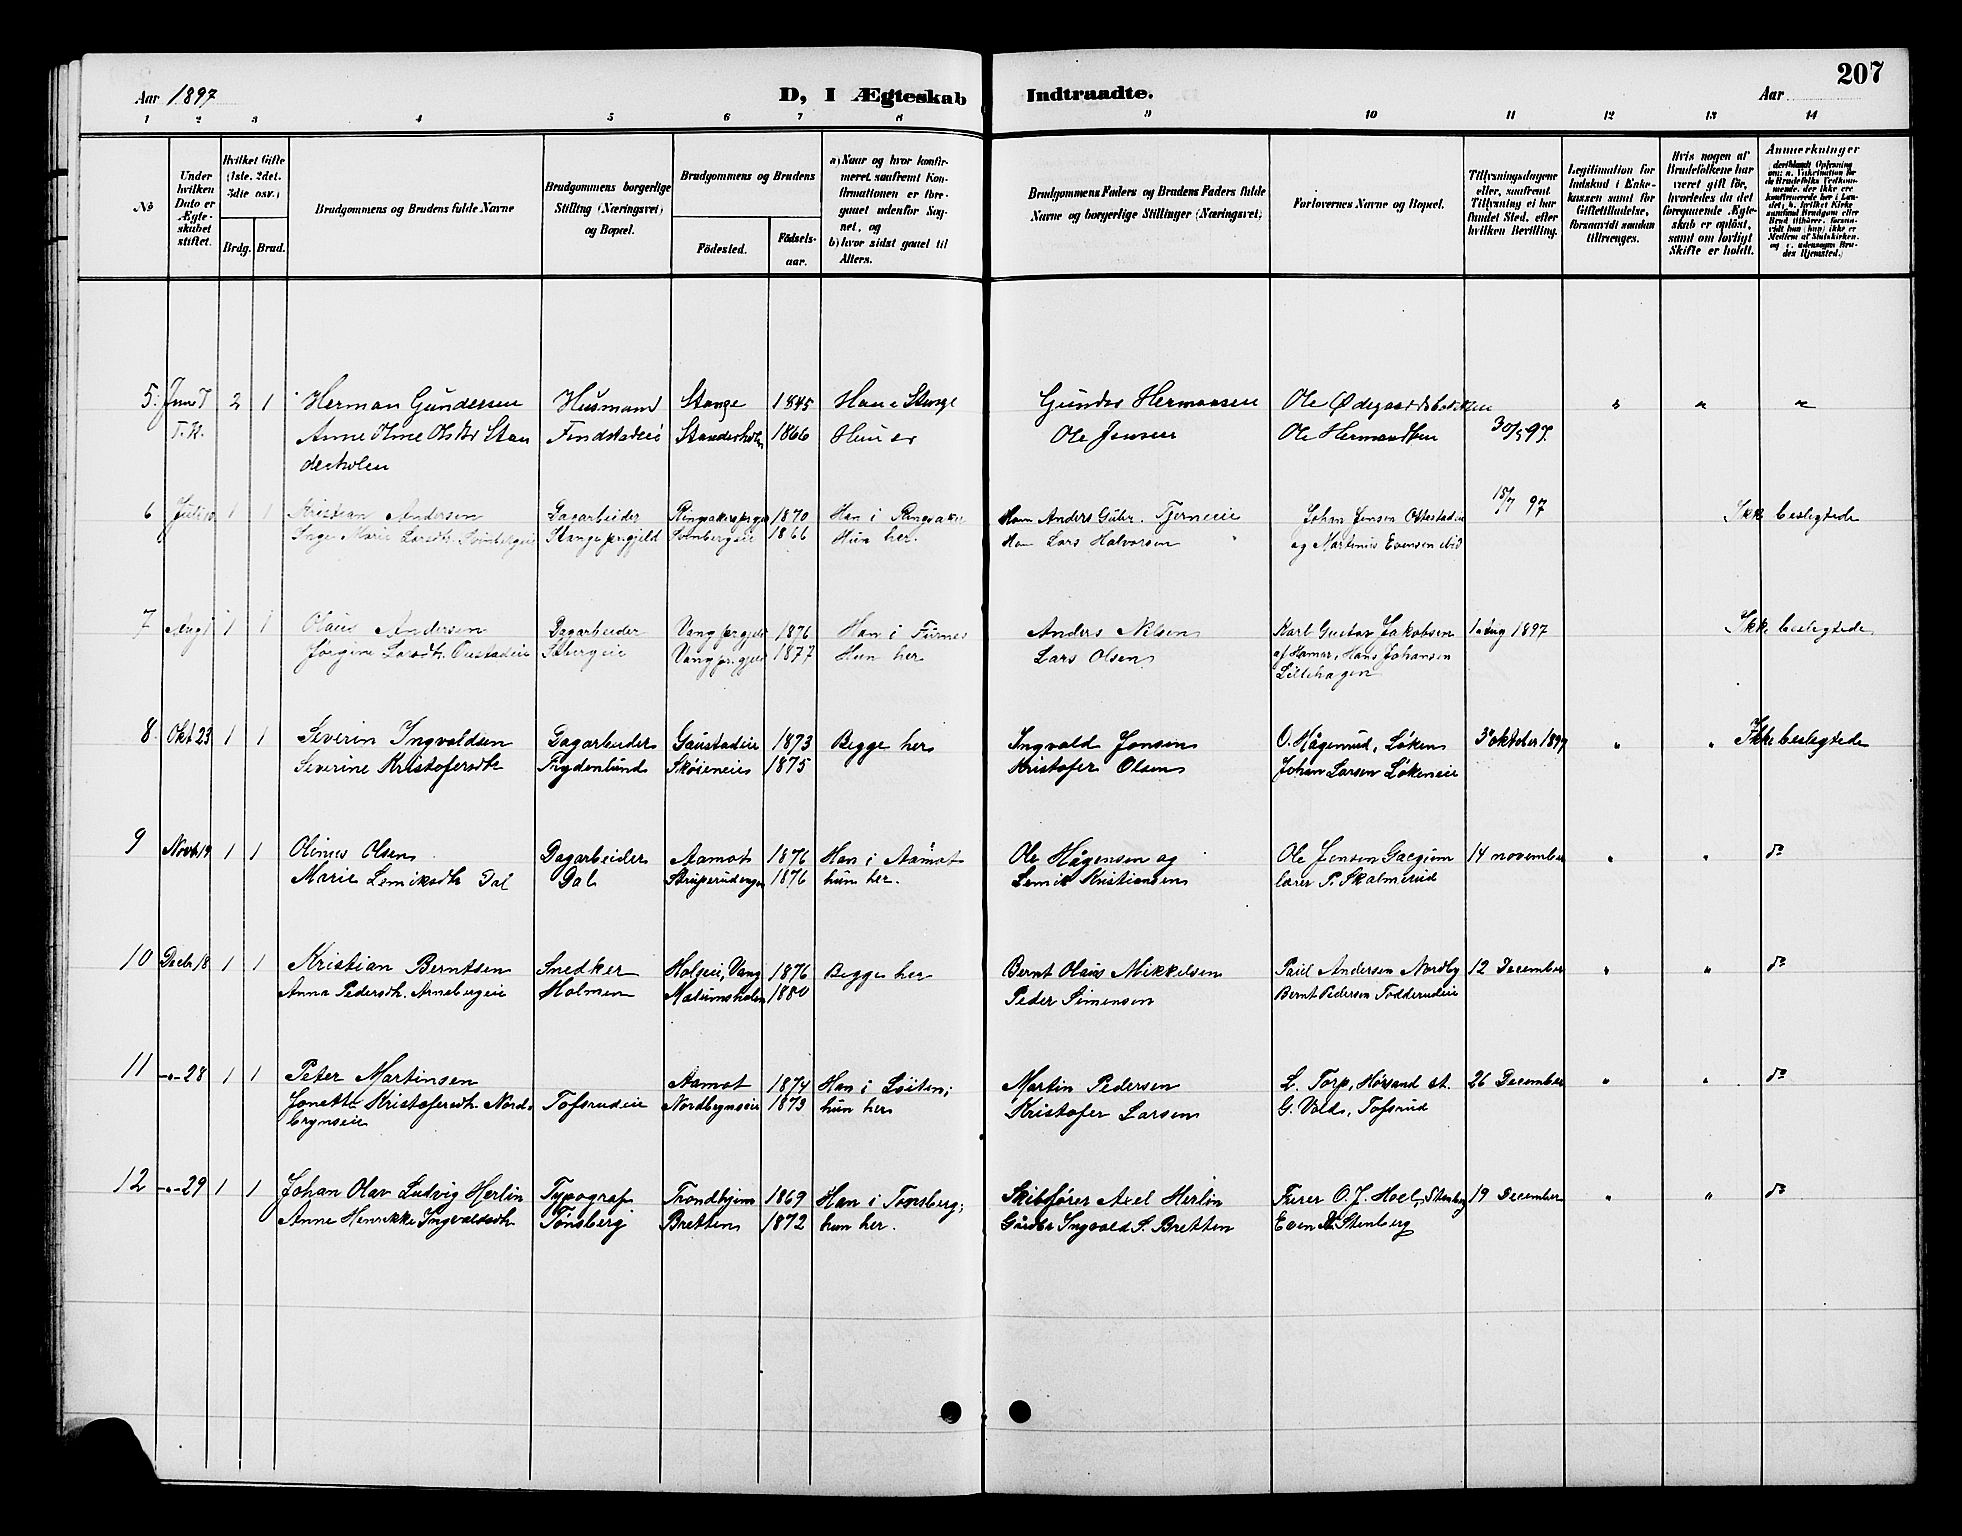 207
Aar 1897
D, I Ægteskab Indtraadte.
Aar
1 2 3 4 5 6 7 8 9 10 11 12 13 14
No
Under hvilken Dato er Ægteskabet stiftet.
Hvilket Gifte (1ste. 2det. 3die osv.)
Brdg. Brud.
Brudgommens og Brudens fulde Navne
Brudgommens borgerlige Stilling (Næringsvei) og Bopæl.
Brudgommens og Brudens
Födested. Födselsaar.
a) Naar og hvor konfirmeret saafremt Konfirmationen er foregaaet udenfor Sognet, og
b) hvor sidst gaaet til Alters.
Brudgommens Faders og Brudens Faders fulde Navne og borgerlige Stillinger (Næringsvei)
Forlovernes Navne og Bopæl.
Tillysningsdagene eller, saafremt Tillysning ei har fundet Sted, efter hvilken Bevilling.
Legitimation for Indskud i Enkekassen samt for Giftetilladelse, forsaavidt saadan tiltrænges.
Hvis nogen af Brudefolkene har været gift för, hvorledes da det foregaaende Ægteskab er oplöst, samt om lovligt Skifte er holdt.
Anmerkninger
5. Juni 7 2 1 Herman Gundersen Husmand Stange 1845 Han i Stange Gunder Hermansen Ole Ødegaardsbakken " " "
Anne Oline Olsdtr Stan Finstadeie Standerholen 1866 Hun er Ole Jensen Ole Hermandsen 30/5 97.
derholen
6 Juli 1 1 Kristian Andersen Dagarbeider Ringsakerprgj 1870 Han i Ringsaker Anders Gulbr. Tjerneeie Johan Jensen Ottestadeie 18/7 97 Ikke beslegtede
Inge Marie Larsdtr. Svinbergeie Stange prgjeld Svenbergeie 1866 Hun her. Lars Halvorsen " og Martinus Evensen ibid
7 Aug 1 1 Olaus Andersen Dagarbeider Vang prgjeld 1876 Han i Furnes Anders Nilsen Karl Gustav Jakobsen 1 Aug 1897 Ikke beslegtede
Jørgine Larsdtr. Stbergeie Vang prgjeld 1877 Hun her Lars Olsen af Hamar, Hans Johansen
Lillehagen
8. Okt 23 1 1 Severin Ingvaldsen Dagarbeider Gaustadeie 1873 Begge her Ingvald Jensen O. Hågenrud, Løken 3 oktober 1897 " " Ikke beslegtede
Severine Kristofersdtr Frydenlund Skøieneie 1875 Kristofer Olsen Johan Larsen Løkeneie
9 Novb 19 1 1 Olinus Olsen Dagarbeider Aamot 1876 Han i Aamot Ole Hågensen og Ole Jensen Galgum 14 november " " do
Marie Lemiksdtr Dal Dal Struperudengen 1876 hun her. Lemik Kristiansen lærer P. Skalmerud
10 Decbr 18 1 1 Kristian Berntsen Snedker Holseie, Vang 1876 Begge her Bernt Olaus Mikkelsen Paul Andersen Nordby 12 December " " do
Anna Pedersdtr. Arnebergeie Holmen Malumsholen 1880 Peder Simensen Bernt Pedersen Todderudeie
11 -"- 28 1 1 Peter Martinsen Aamot 1874 Han i Løiten; Martin Pedersen L. Torp, Hørsand st. 26 December " " do
Jonette Kristofersdtr. Nord- Tofsrudeie Nordbynseie 1873 hun her Kristofer Larsen G. Vold, Tofsrud
bynseie
12 -"- 29 1 1 Johan Olav Ludvig Herlin Typograf Trondhjem 1869 Han i Tønsberg; Skibsfører Axel Herlin Furer O. J. Hoel, Stenberg 19 December " " do
Anne Henrikke Ingvaldsdtr. Tønsberg Bretten 1872 hun her. Gårdbr Ingvald S. Bretten Even A. Stenberg